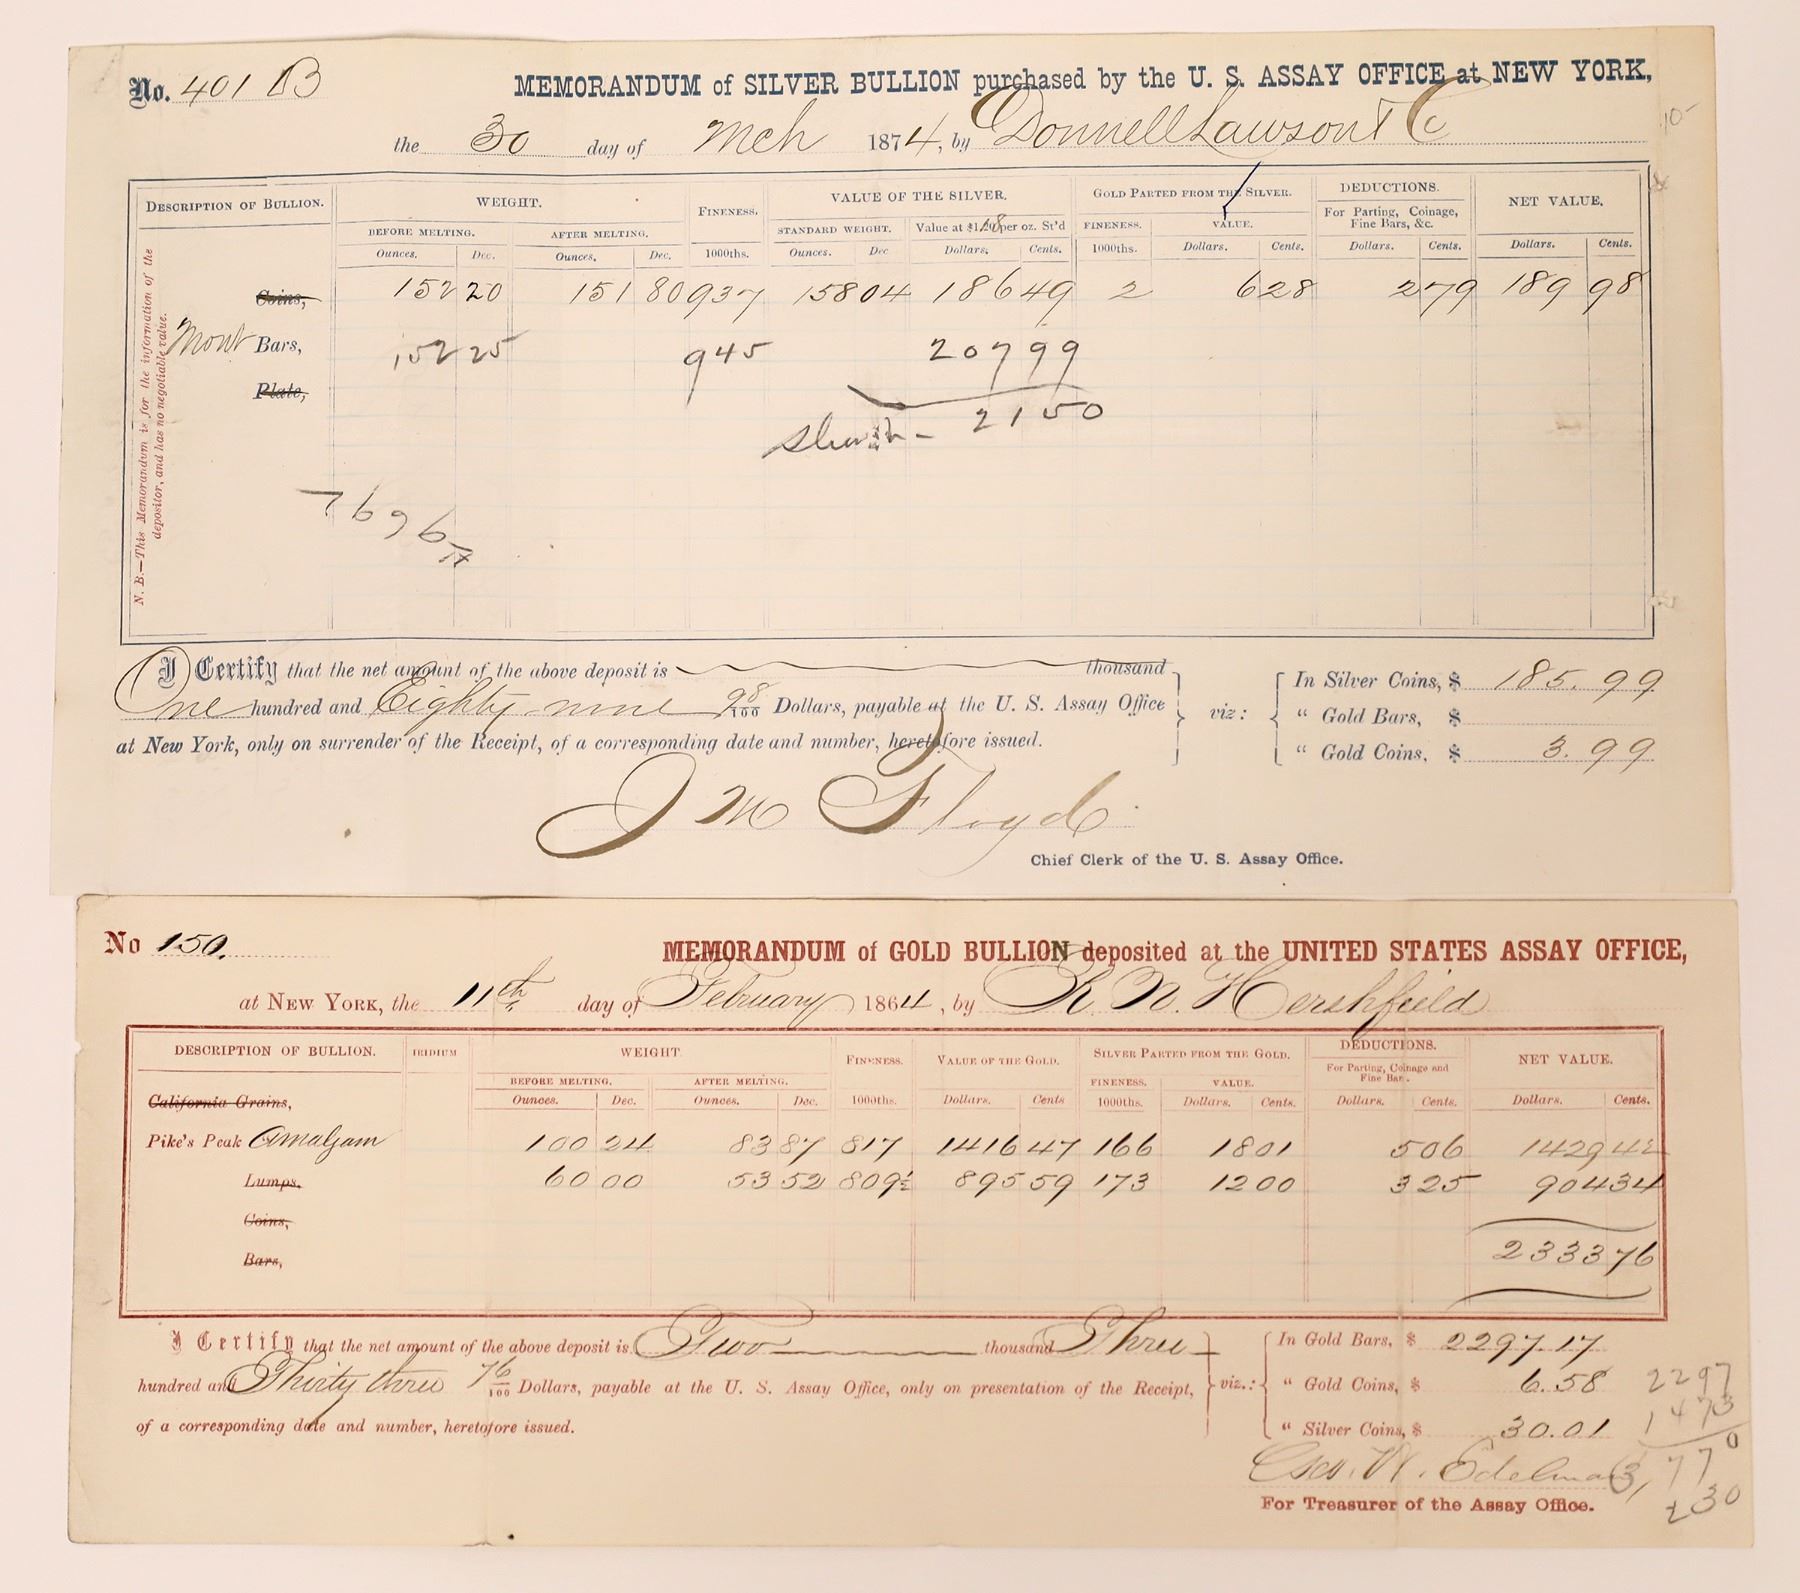 No. 401 B MEMORANDUM of SILVER BULLION purchased by the U. S. ASSAY OFFICE at NEW YORK,
the 30 day of Mch 1874, by Donnell Lawson & Co
DESCRIPTION OF BULLION. WEIGHT. FINENESS. VALUE OF THE SILVER. GOLD PARTED FROM THE SILVER. DEDUCTIONS. NET VALUE.
BEFORE MELTING. AFTER MELTING. STANDARD WEIGHT. Value at $1. per oz. St'd FINENESS. VALUE. For Parting, Coinage, Fine Bars, &c.
Ounces. Dec. Ounces. Dec. 1000ths. Ounces. Dec Dollars. Cents. 1000ths. Dollars. Cents. Dollars. Cents. Dollars. Cents.
Coins, 152 20 151 80 937 158 04 186 49 2 6 28 2 79 189 98
Mont Bars, 152 25 945 207 99
Plate, 21 50
7696
N. B.—This Memorandum is for the information of the
depositor, and has no negotiable value.
I Certify that the net amount of the above deposit is thousand
One hundred and Eighty nine 98/100 Dollars, payable at the U. S. Assay Office
at New York, only on surrender of the Receipt, of a corresponding date and number, heretofore issued.
viz: In Silver Coins, $ 185.99
" Gold Bars, $
" Gold Coins, $ 3.99
J M Floyd
Chief Clerk of the U. S. Assay Office.
No 150. MEMORANDUM of GOLD BULLION deposited at the UNITED STATES ASSAY OFFICE,
at NEW YORK, the 11th day of February 1864, by R. N. Hershfield
DESCRIPTION OF BULLION. IRIDIUM WEIGHT. FINENESS. VALUE OF THE GOLD. SILVER PARTED FROM THE GOLD. DEDUCTIONS. NET VALUE.
BEFORE MELTING. AFTER MELTING. FINENESS. VALUE. For Parting, Coinage and Fine Bar.
California Grains, Ounces. Dec. Ounces. Dec. 1000ths. Dollars. Cents 1000ths. Dollars. Cents. Dollars. Cents. Dollars. Cents.
Pike's Peak Amalgam 100 24 83 87 817 1416 47 166 18 01 5 06 1429 42
Lumps. 60 00 53 52 809½ 895 59 173 12 00 3 25 904 34
Coins,
Bars, 2333 76
I Certify that the net amount of the above deposit is Two thousand Three
hundred and Thirty three 76/100 Dollars, payable at the U. S. Assay Office, only on presentation of the Receipt,
of a corresponding date and number, heretofore issued.
viz.: In Gold Bars, $ 2297.17
" Gold Coins, $ 6.58
" Silver Coins, $ 30.01
2297
1473
3,770
230
Geo. W. Edelman
For Treasurer of the Assay Office.